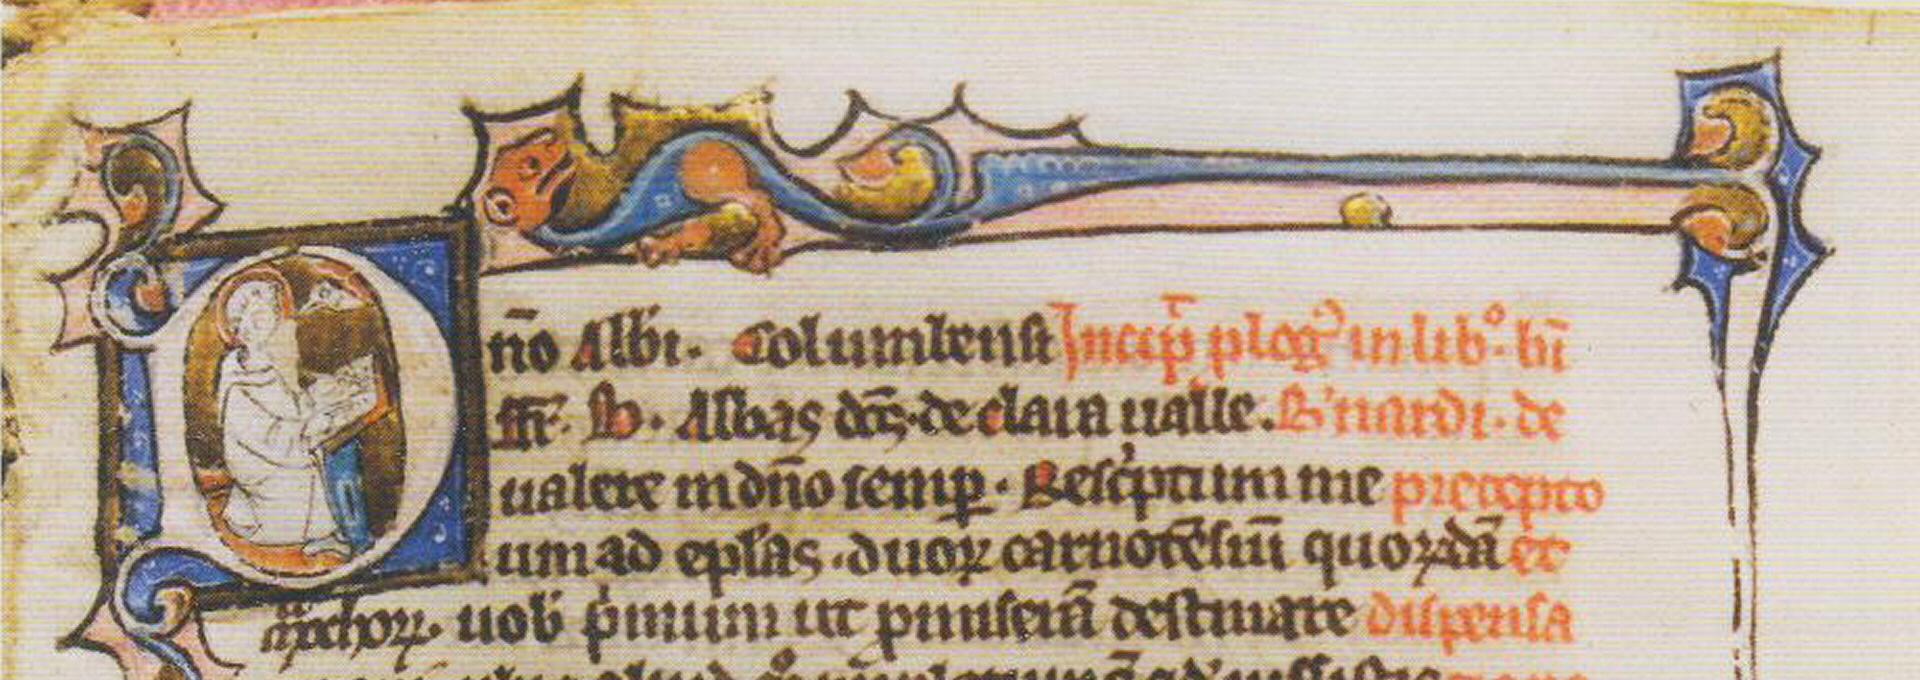 Dn̄o Abb̄i. Columbenſi Incip̄ p̱log᷒ in lib᷒. bī
ffr̄. B. Abbas dc̄s. de clara ualle. B'nardi. de
ualere in dn̄o semp̱. Reſc'ptum me precepto
um ad ep̄ſas. duoꝝ carnotēſiū quoꝝdā et
mᵒchoꝝ. uob p'mum ut p̱miſerā deſtinare diſpenſa